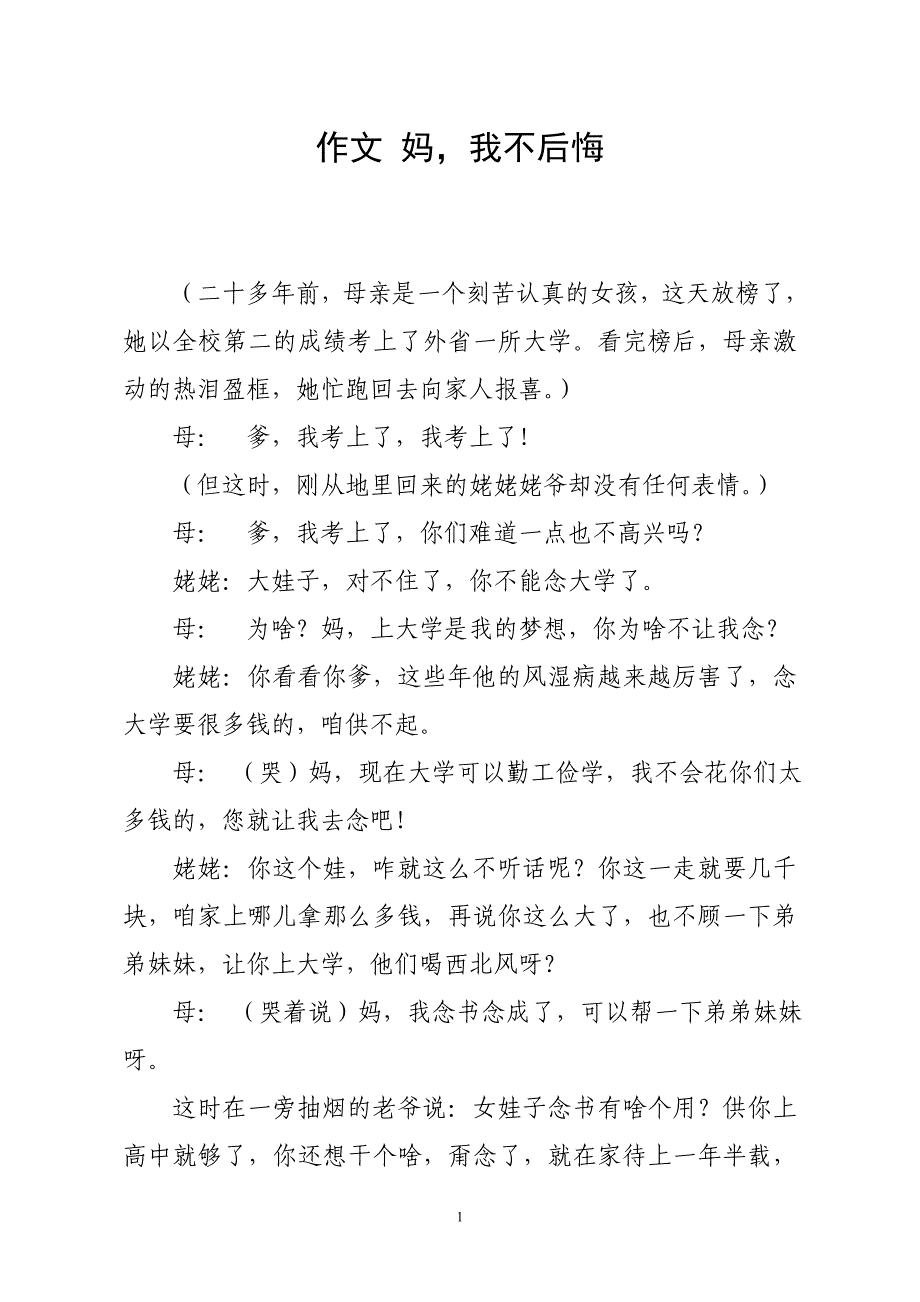 作文 妈，我不后悔
（二十多年前，母亲是一个刻苦认真的女孩，这天放榜了，
她以全校第二的成绩考上了外省一所大学。看完榜后，母亲激
动的热泪盈框，她忙跑回去向家人报喜。）
母： 爹，我考上了，我考上了！
（但这时，刚从地里回来的姥姥姥爷却没有任何表情。）
母： 爹，我考上了，你们难道一点也不高兴吗？
姥姥：大娃子，对不住了，你不能念大学了。
母： 为啥？妈，上大学是我的梦想，你为啥不让我念？
姥姥：你看看你爹，这些年他的风湿病越来越厉害了，念
大学要很多钱的，咱供不起。
母： （哭）妈，现在大学可以勤工俭学，我不会花你们太
多钱的，您就让我去念吧！
姥姥：你这个娃，咋就这么不听话呢？你这一走就要几千
块，咱家上哪儿拿那么多钱，再说你这么大了，也不顾一下弟
弟妹妹，让你上大学，他们喝西北风呀？
母： （哭着说）妈，我念书念成了，可以帮一下弟弟妹妹
呀。
这时在一旁抽烟的老爷说：女娃子念书有啥个用？供你上
高中就够了，你还想干个啥，甭念了，就在家待上一年半载，
1